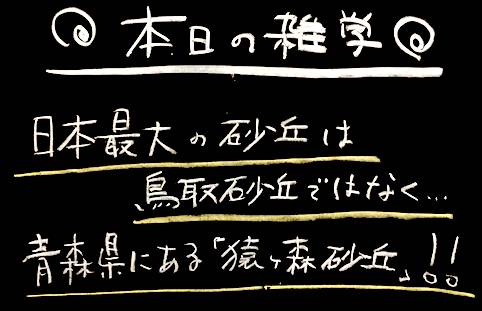 本日の雑学
日本最大の砂丘は
鳥取砂丘ではなく...
青森県にある「猿ヶ森砂丘」!!